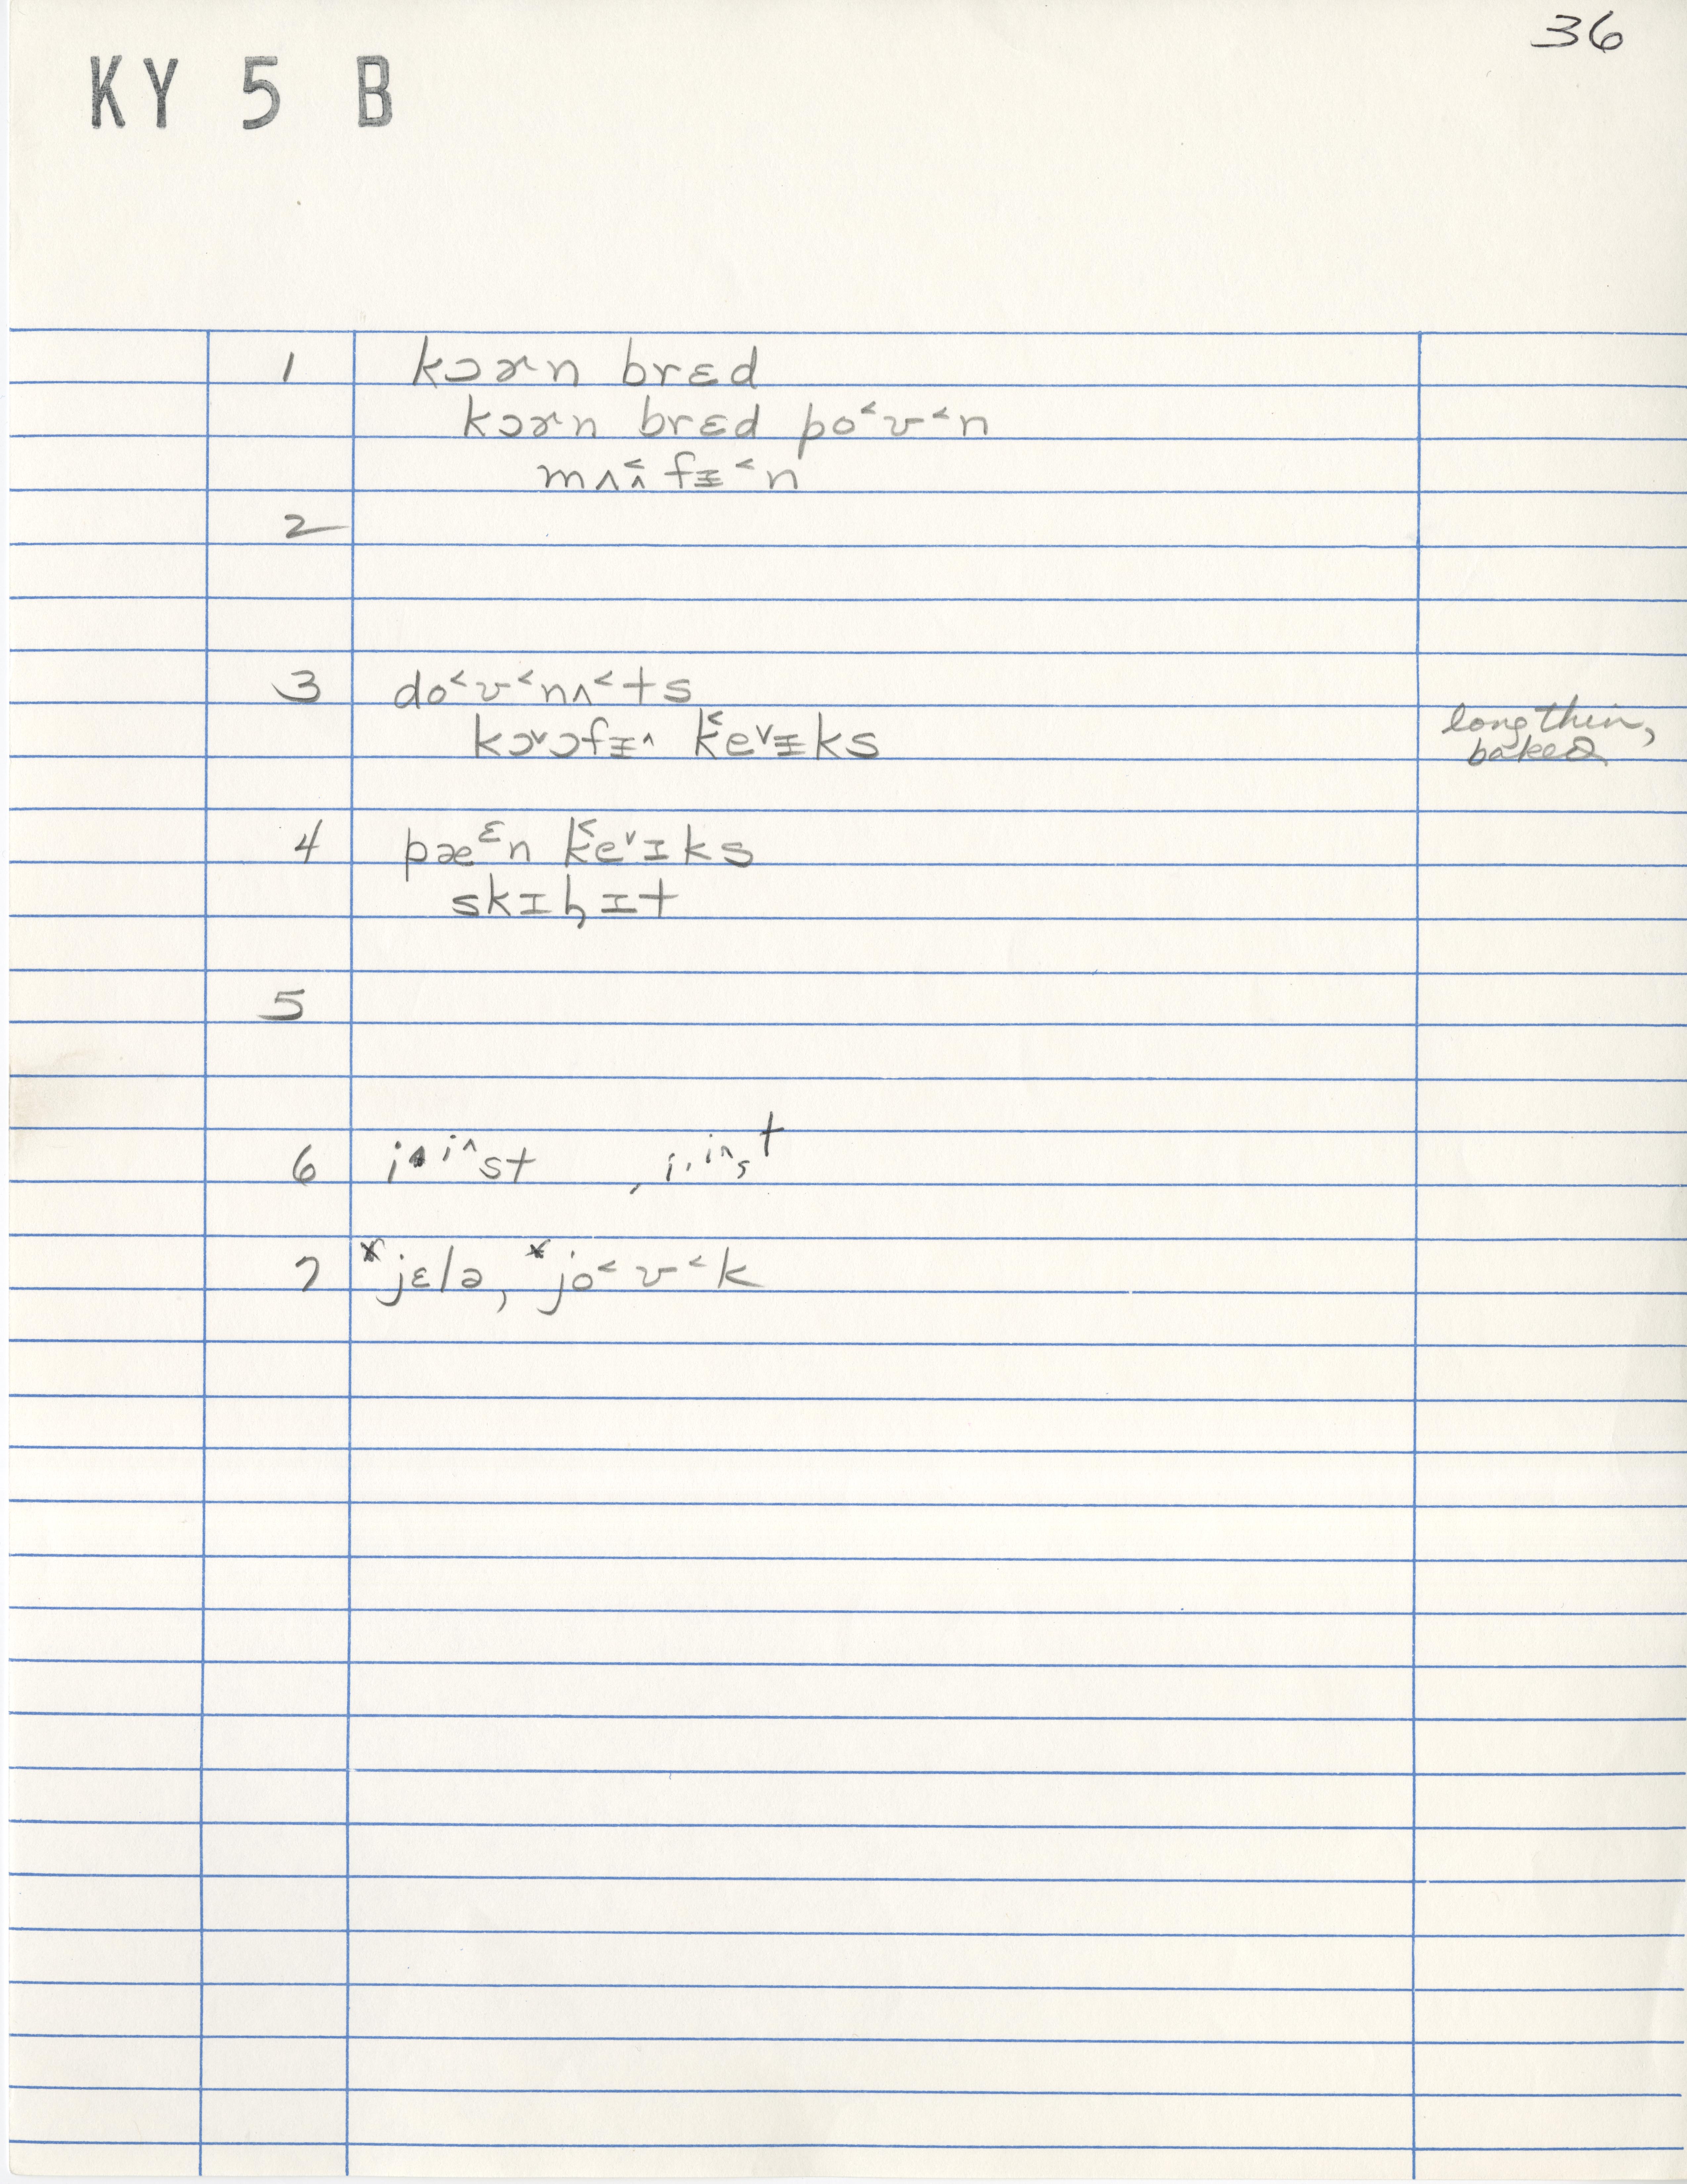 36
KY 5 B
1 kɔɚn brɛd
kɔɚn brɛd po˂ʊ˂n
mʌʌ̂˂fɪ̵˂n
2
3 do˂ʊ˂nʌ˂ts
kɔ˅ɔfɪ̵˄ k̬˂e˅ɪ̵ks long thin,
baked
4 pæᵋn k˂e˅ɪks
skɪɫɪt
5
6 i i˄st , i·i˄st
7 *jɛlə, *jo˂ʊ˂k